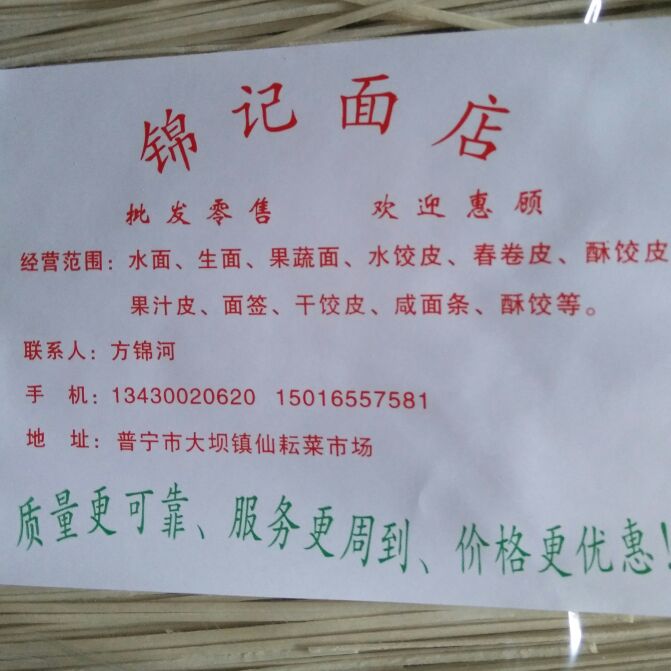 锦记面店
批发零售 欢迎惠顾
经营范围：水面、生面、果蔬面、水饺皮、春卷皮、酥饺皮
果汁皮、面签、干饺皮、咸面条、酥饺等。
联系人：方锦河
手 机：13430020620 15016557581
地 址：普宁市大坝镇仙耘菜市场
质量更可靠、服务更周到、价格更优惠！